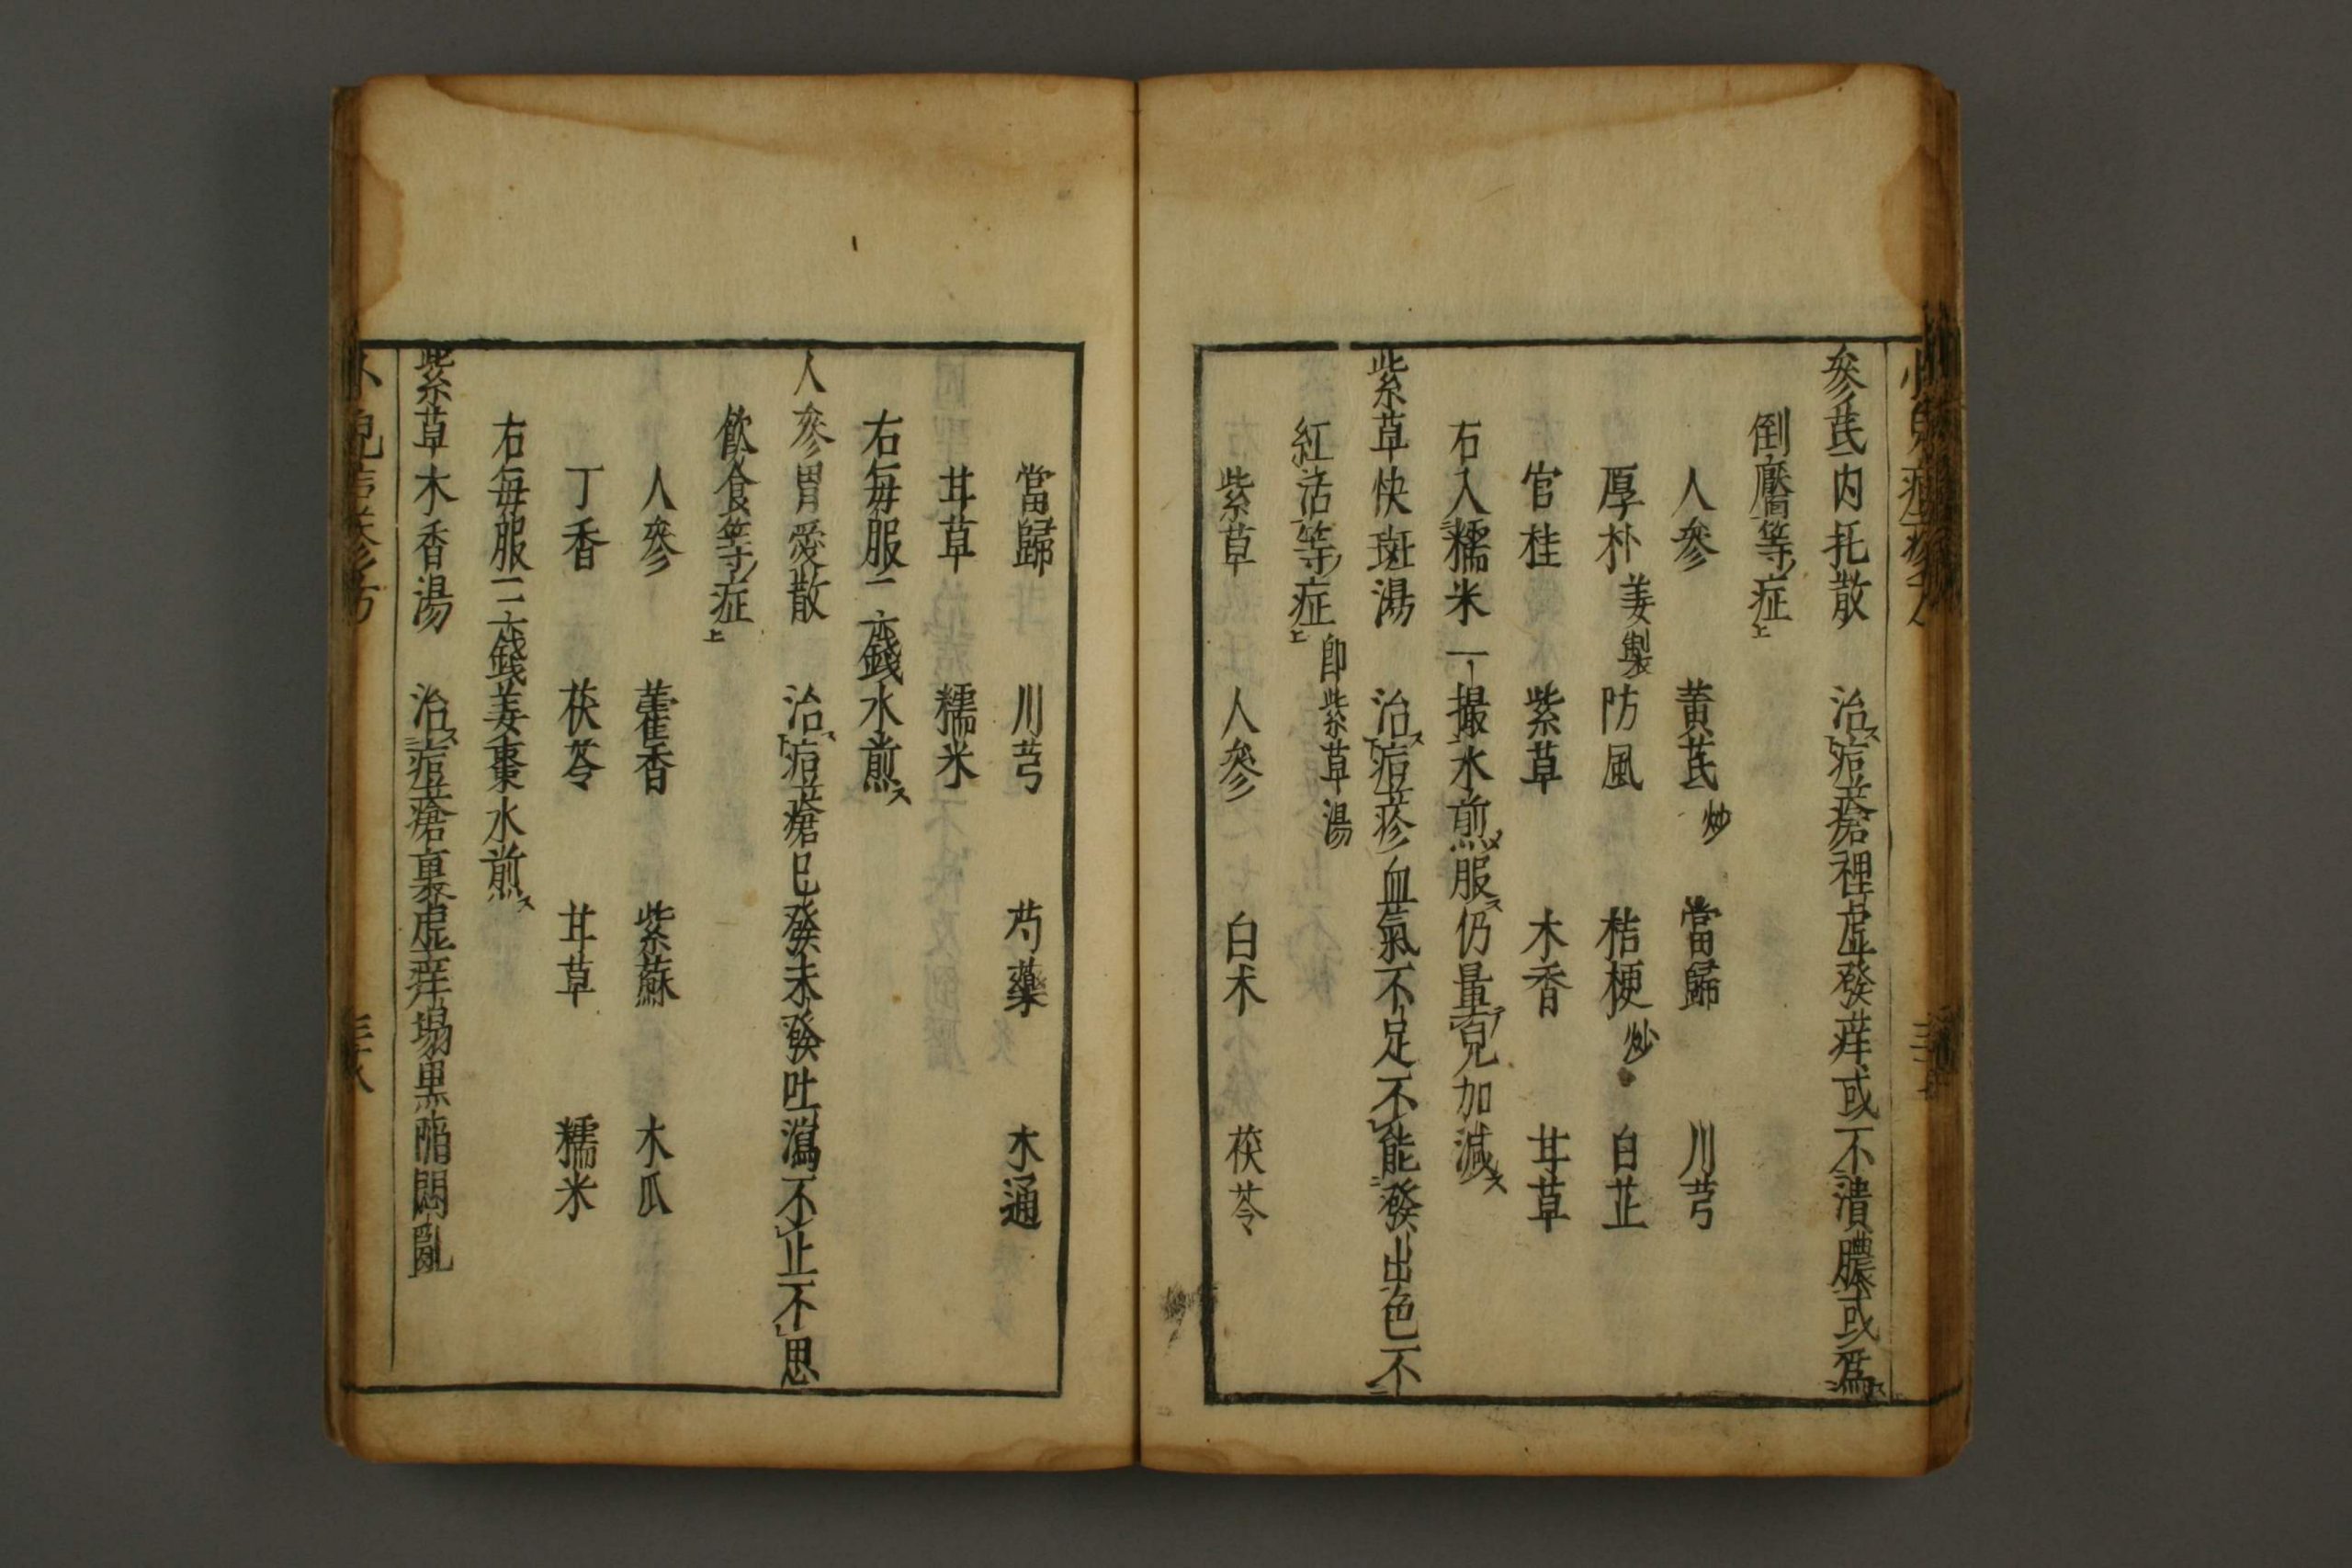 參芪内托散　治痘瘡裡虚發痒或不潰膿或爲
倒靨等症
人參　黄芪炒　當歸　川芎
厚朴姜製　防風　桔梗炒　白芷
官桂　紫草　木香　甘草
右入糯米一撮水煎服仍量兒加減
紫草快斑湯　治痘疹血氣不足不能發出色不
紅活等症　即紫草湯
紫草　人參　白朮　茯苓
當歸　川芎　芍藥　木通
甘草　糯米
右毎服二錢水煎
人參胃愛散　治痘瘡已發未發吐瀉不止不思
飲食等症
人參　藿香　紫蘇　木瓜
丁香　茯苓　甘草　糯米
右毎服三錢姜棗水煎
紫草木香湯　治痘瘡裏虚痒塲黒陥悶亂